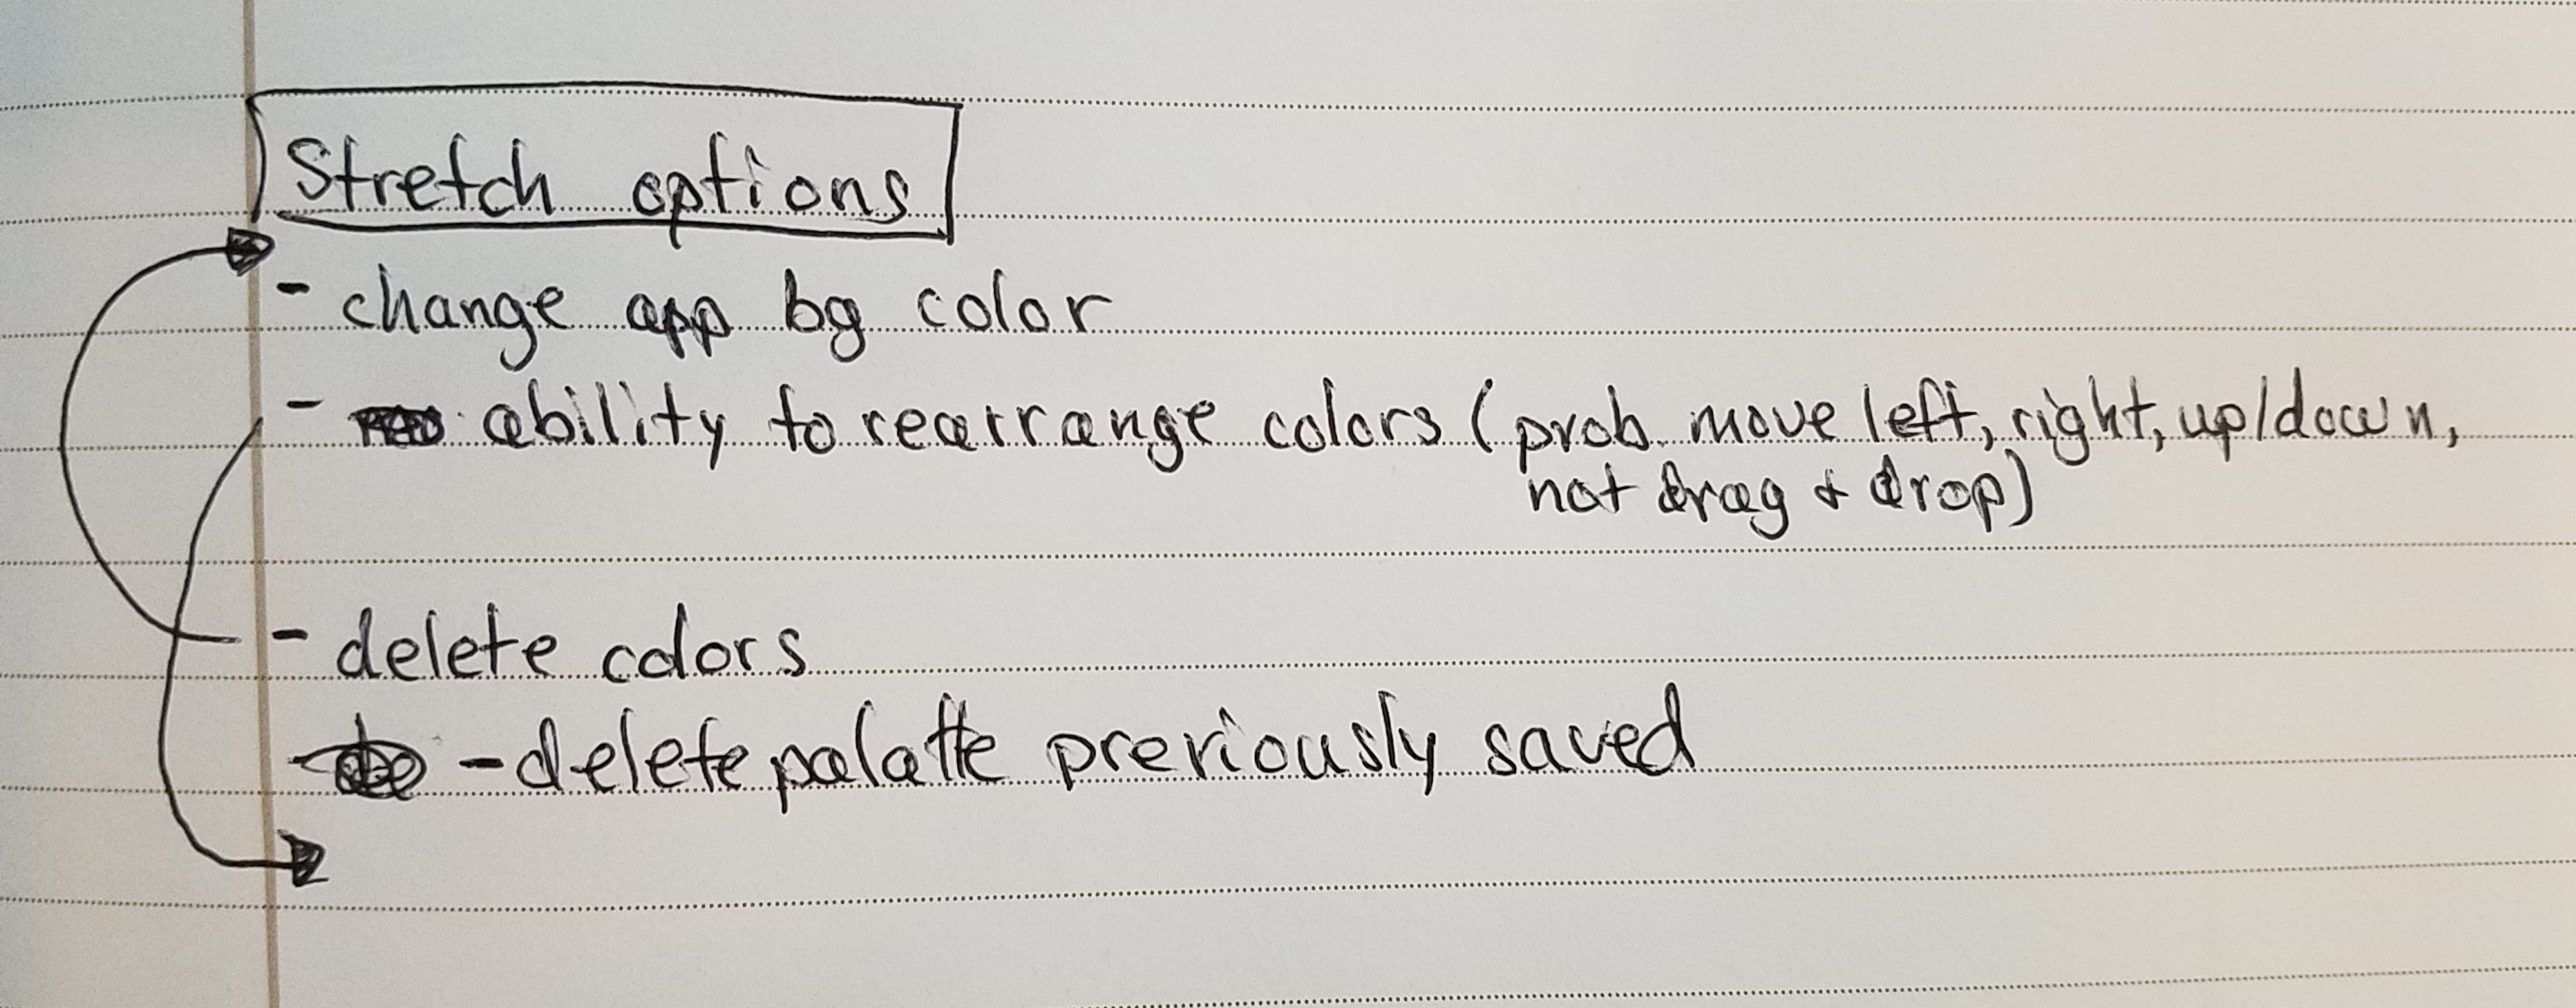 Stretch options
- change app bg color
- ability to rearrange colors (prob. move left, right, up/down,
not drag + drop)
- delete colors
- delete palatte previously saved